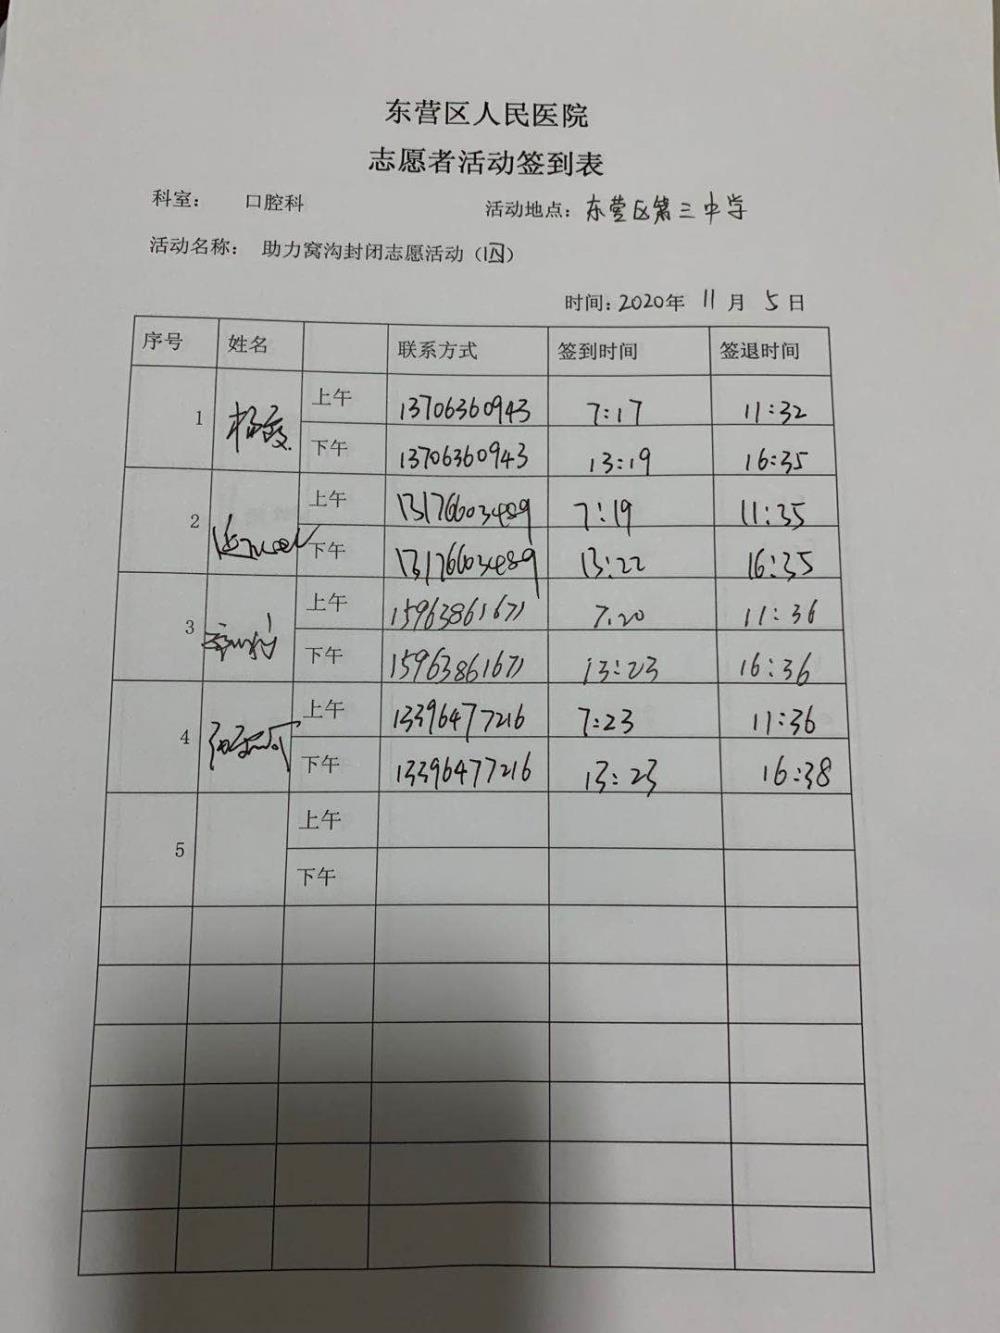 东营区人民医院
志愿者活动签到表
科室： 口腔科 活动地点：东营区第三中学
活动名称： 助力窝沟封闭志愿活动（四）
时间：2020年 11月 5日
序号 姓名 联系方式 签到时间 签退时间
1 杨霞 上午 13706360943 7:17 11:32
下午 13706360943 13:19 16:35
2 上午 13176603489 7:19 11:35
下午 13176603489 13:22 16:35
3 上午 15963861671 7:20 11:36
下午 15963861671 13:23 16:36
4 上午 13396477216 7:23 11:36
下午 13396477216 13:23 16:38
5 上午
下午